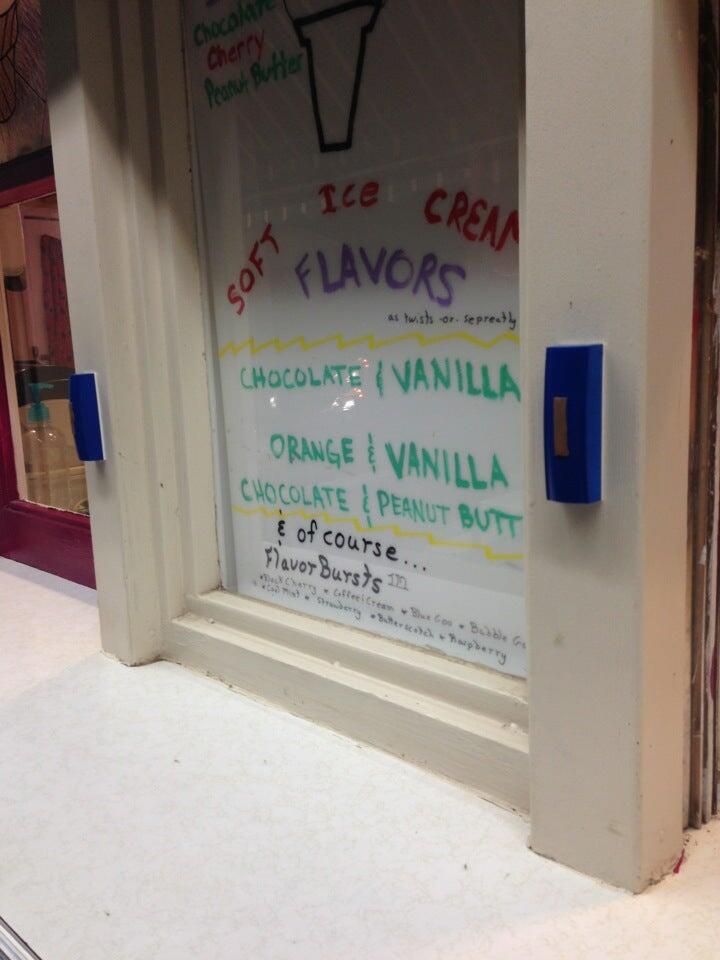 Chocolate
Cherry
Peanut Butter
SOFT Ice CREAM
FLAVORS
as twists -or- sepreatly
CHOCOLATE & VANILLA
ORANGE & VANILLA
CHOCOLATE & PEANUT BUTT
& of course...
Flavor Bursts TM
*Black Cherry * Coffee Cream * Blue Goo * Bubble Gu
*Cool Mint * Strawberry * Butterscotch * Raspberry